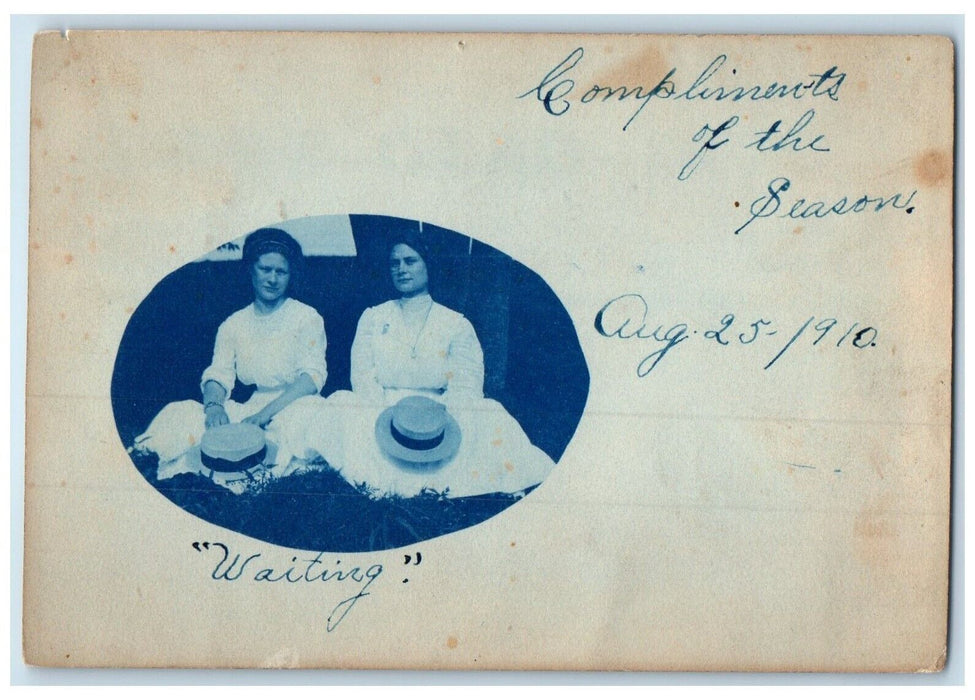 Compliments
of the
Season.
Aug. 25-1910.
"Waiting."